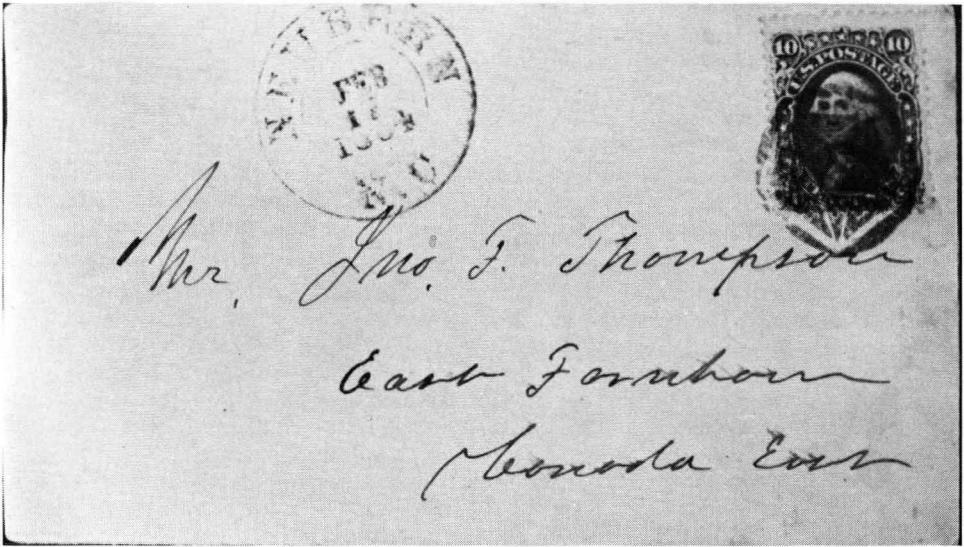 NEWBERN
FEB
17
1864
N.C
10 10
U.S. POSTAGE
Mr. Jno. F. Thompson
East Farnham
Canada East